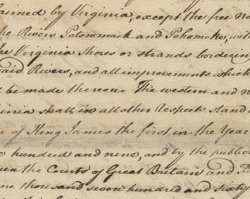 aimed by Virginia, except the free N
he Rivers Potowmack and Pokomoke, wit
the Virginia Shores or strands bordering
said Rivers, and all improvements which
be made thereon. The western and N
inia shall in all other Respects Stand
r of King James the first, in the Year
x hundred and nine, and by the public
een the Courts of Great Britain and
one thousand seven hundred and sixty